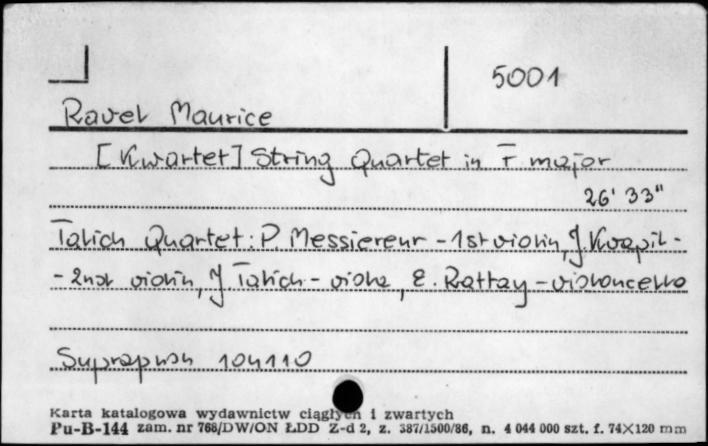 5001
Ravel Maurice
[Kwartet] String Quartet in F major
26' 33"
Talich Quartet: P. Messiereur - 1st violin, J. Kvapil -
- 2nd violin, J Talich - viola, E. Rattay - violoncello
Supraphon 104110
Karta katalogowa wydawnictw ciągłych i zwartych
Pu-B-144 zam. nr 768/DW/ON ŁDD Z-d 2, z. 387/1500/86, n. 4 044 000 szt. f. 74×120 mm